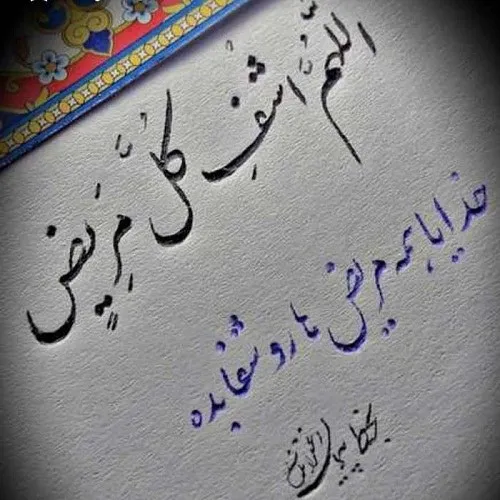 اللهُمَّ اشفِ کُلَّ مَریض
خدایا همه مریض ها رو شفا بده